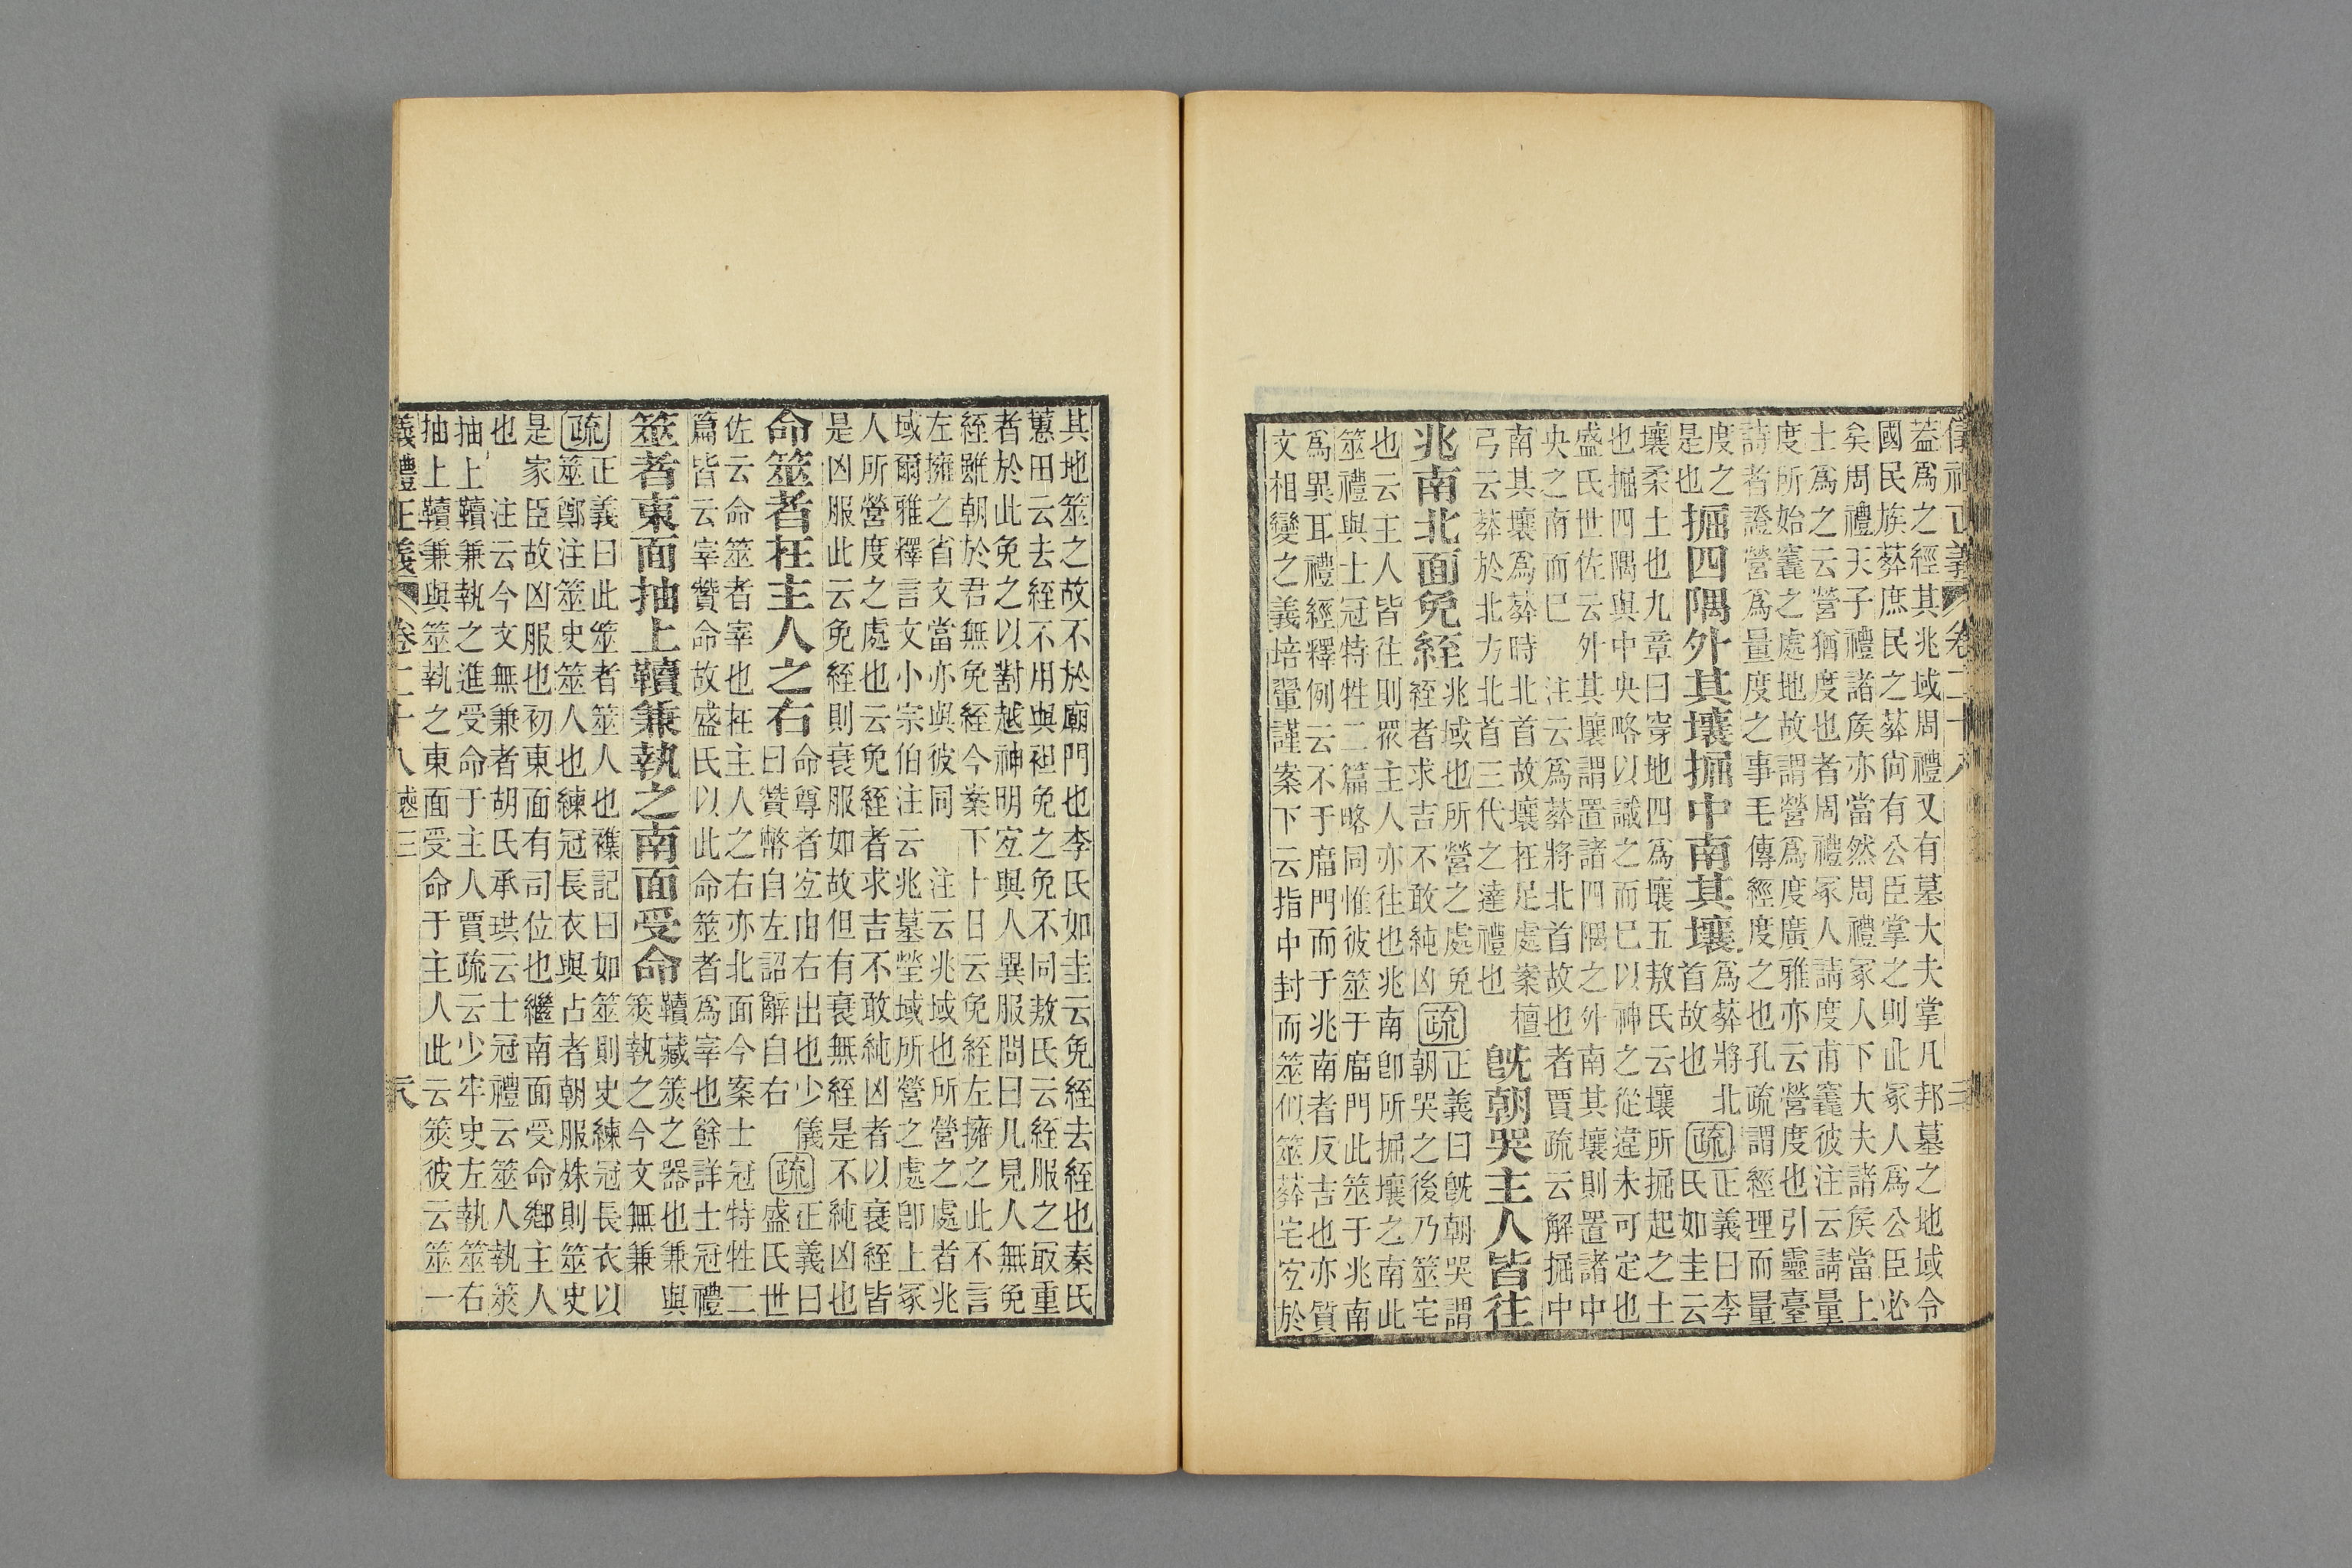 葢爲之經其兆域周禮又有墓大夫掌凡邦墓之地域令
國民族葬庶民之葬尙有公臣掌之則此冢人爲公臣必
矣周禮天子禮諸矦亦當然周禮冢人下大夫諸矦當上
士爲之云營猶度也者周禮冢人請度甫竁彼注云請量
度所始竁之處地故謂營爲度廣雅亦云營度也引靈臺
詩者證營爲量度之事毛傳經度之也孔疏謂經理而量
度之
是也
掘四隅外其壤掘中南其壤
爲葬將北
首故也
疏
正義曰李
氏如圭云
壤柔土也九章曰穿地四爲壤五敖氏云壤所掘起之土
也掘四隅與中央略以識之而已以神之從違未可定也
盛氏世佐云外其壤謂置諸四隅之外南其壤則置諸中
央之南而已　注云爲葬將北首故也者賈疏云解掘中
南其壤爲葬時北首故壤在足處案檀
弓云葬於北方北首三代之達禮也
旣朝哭主人皆往
兆南北面免絰
兆域也所營之處免
絰者求吉不敢純凶
疏
正義曰旣朝哭謂
朝哭之後乃筮宅
也云主人皆往則眾主人亦往也兆南卽所掘壤之南此
筮禮與士冠特牲二篇略同惟彼筮于庿門此筮于兆南
爲異耳禮經釋例云不于庿門而于兆南者反吉也亦質
文相變之義培翬謹案下云指中封而筮似筮葬宅宐於
其地筮之故不於廟門也李氏如圭云免絰去絰也秦氏
蕙田云去絰不用與袒免之免不同敖氏云絰服之最重
者於此免之以對越神明宐與人異服問曰凡見人無免
絰雖朝於君無免絰今案下卜日云免絰左擁之此不言
左擁之省文當亦與彼同　注云兆域也所營之處者兆
域爾雅釋言文小宗伯注云兆墓塋域所營之處卽上冢
人所營度之處也云免絰者求吉不敢純凶者以衰絰皆
是凶服此云免絰則衰服如故但有衰無絰是不純凶也
命筮者在主人之右
命尊者宐由右出也少儀
曰贊幣自左詔辭自右
疏
正義曰
盛氏世
佐云命筮者宰也在主人之右亦北面今案士冠特牲二
篇皆云宰贊命故盛氏以此命筮者爲宰也餘詳士冠禮
筮者東面抽上韇兼執之南面受命
韇藏筴之器也兼與
筴執之今文無兼
疏
正義曰此筮者筮人也襍記曰如筮則史練冠長衣以
筮鄭注筮史筮人也練冠長衣與占者朝服殊則筮史
是家臣故凶服也初東面有司位也繼南面受命鄕主人
也　注云今文無兼者胡氏承珙云士冠禮云筮人執筴
抽上韇兼執之進受命于主人賈疏云少牢史左執筮右
抽上韇兼與筮執之東面受命于主人此云筴彼云筮一
儀禮正義　卷二十八